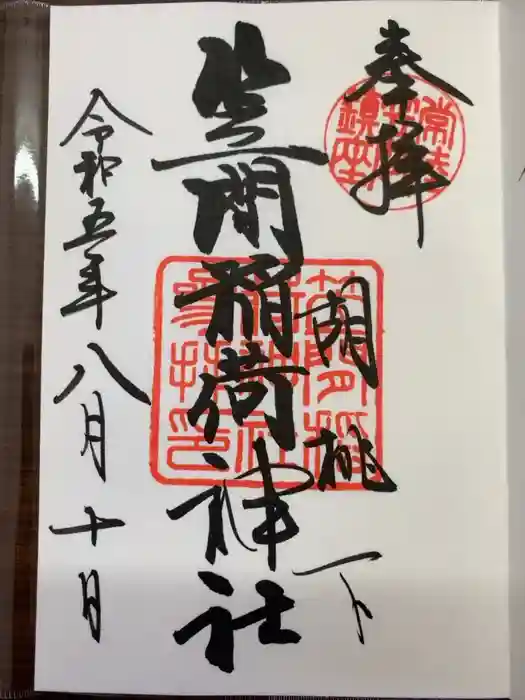 奉拝
胡桃下
笠間稲荷神社
令和五年八月十日